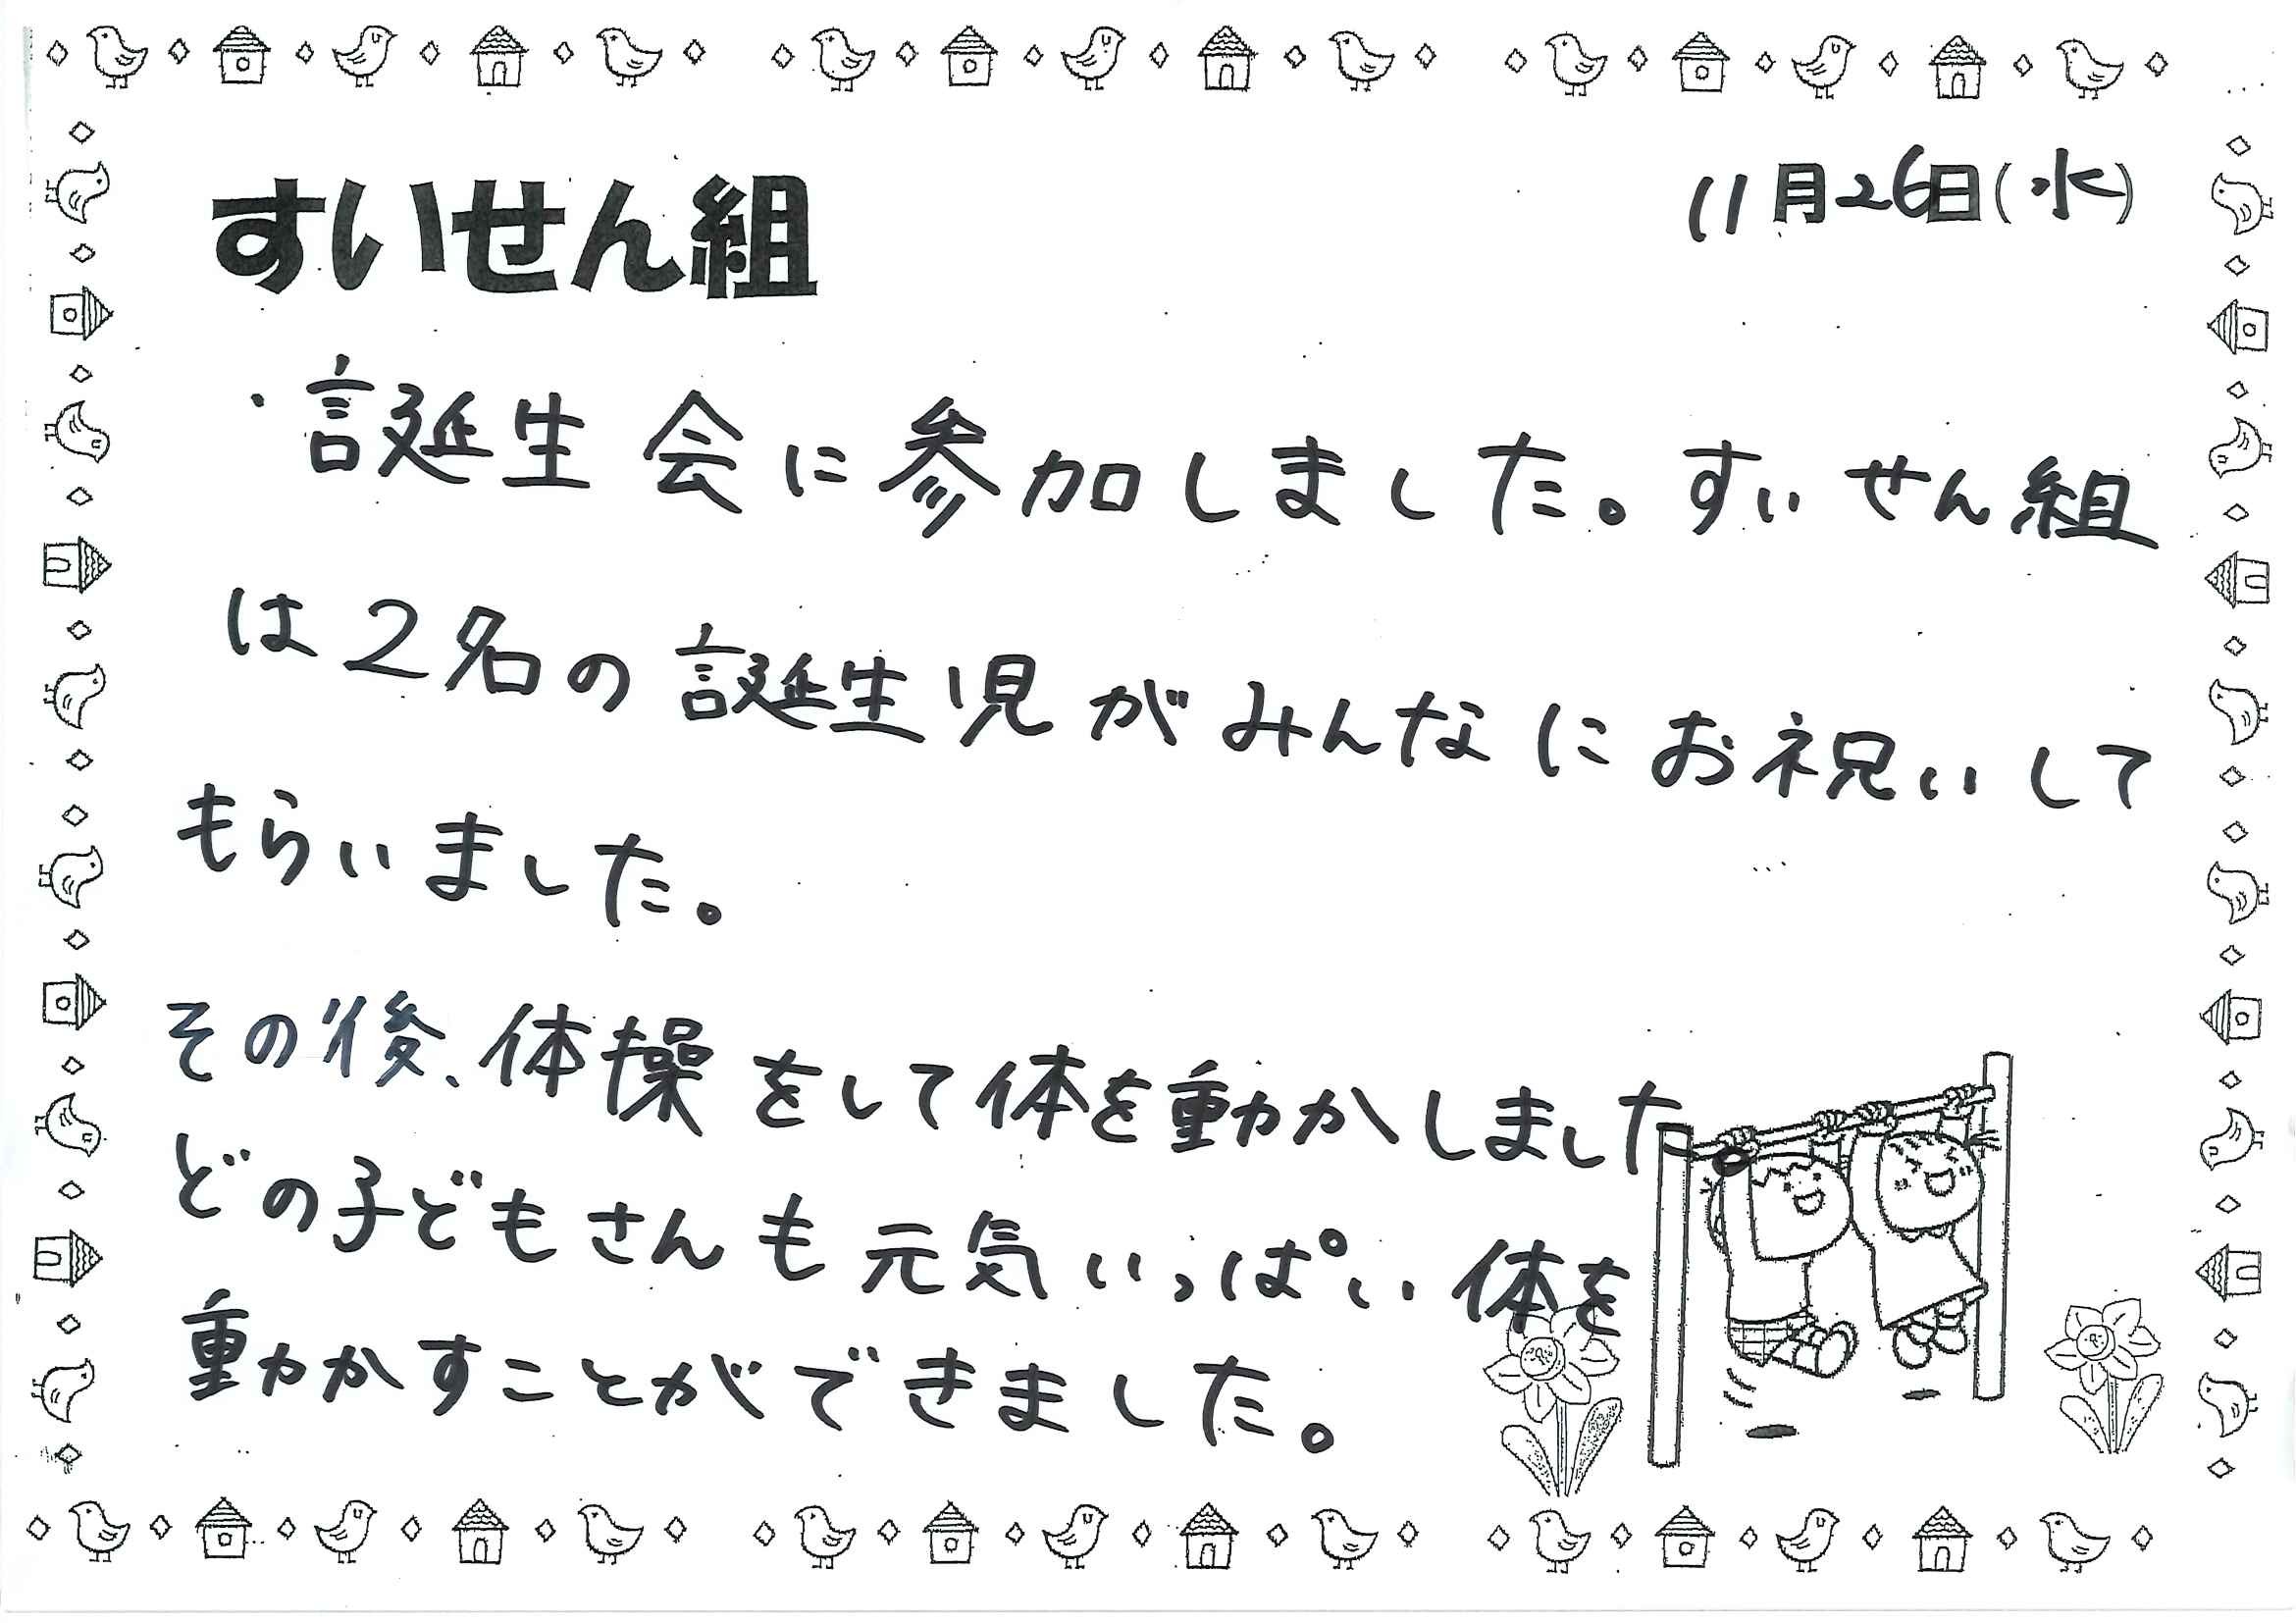 すいせん組
11月26日(水)
・誕生会に参加しました。すいせん組
は2名の誕生児がみんなにお祝いして
もらいました。
その後、体操をして体を動かしました。
どの子どもさんも元気いっぱい体を
動かすことができました。